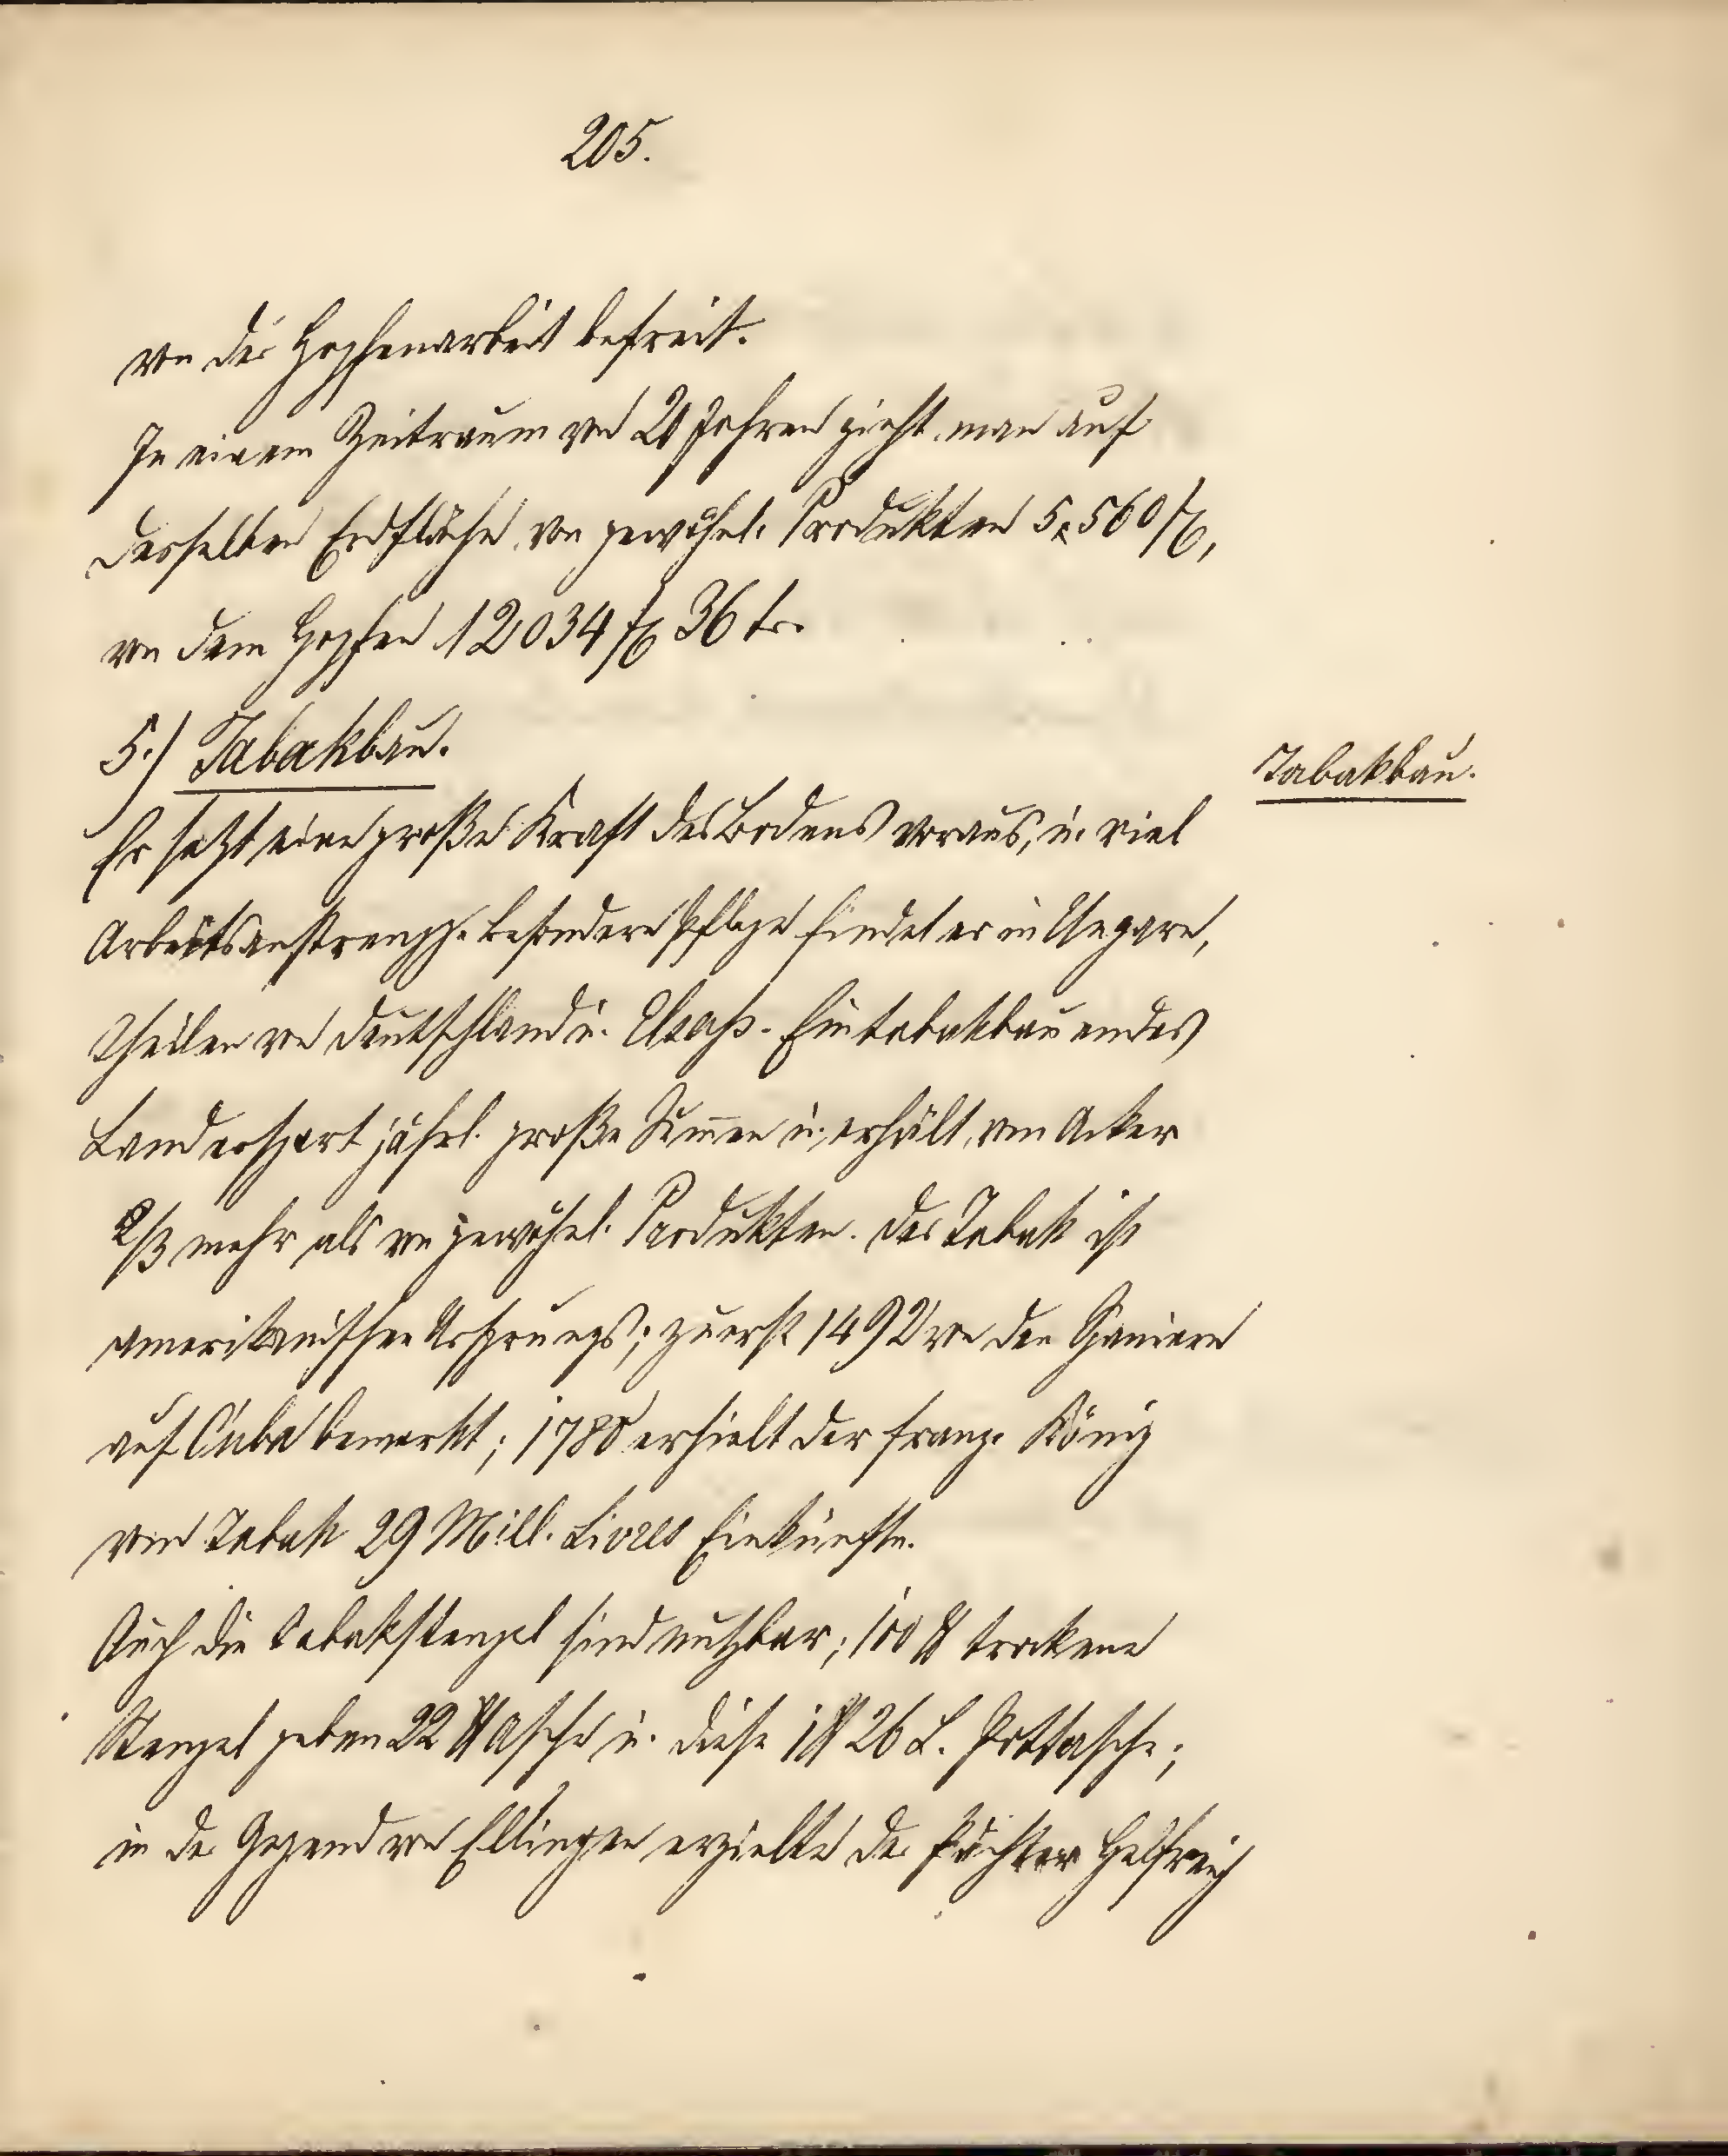 205.
von der Hopfenarbeit befreit.
In einem Zeitraum von 20 Jahren zieht man auf
derselben Erdfläche von gewöhnl. Produkten 5,560 fl,
von dem Hopfen 12034 fl 36 kr.
5.) Tabakbau.
Tabakbau.
Er setzt eine große Kraft des Bodens voraus, u. viel
Arbeitsanstrengg. besondere Pflege findet er in Ungarn,
Theilen von Deutschland u. Elsaß. Ein tabakbauendes
Land erspart jährl. große Sum̅en u. erhält vom Acker
2/3 mehr als von gewöhnl. Produkten. Der Tabak ist
amerikanischen Ursprungs; zuerst 1492 von den Spaniern
auf Cuba bemerkt; 1780 erhielt der franz. König
vom Tabak 29 Mill. Livres Einkünfte.
Auch die Tabakstengel sind nutzbar; 100 ℔ trockene
Stengel geben 22 ℔ Asche u. diese 1 ℔ 26 L. Pottasche;
in der Gegend von Ellingen erzielte der Pächter Helfreich